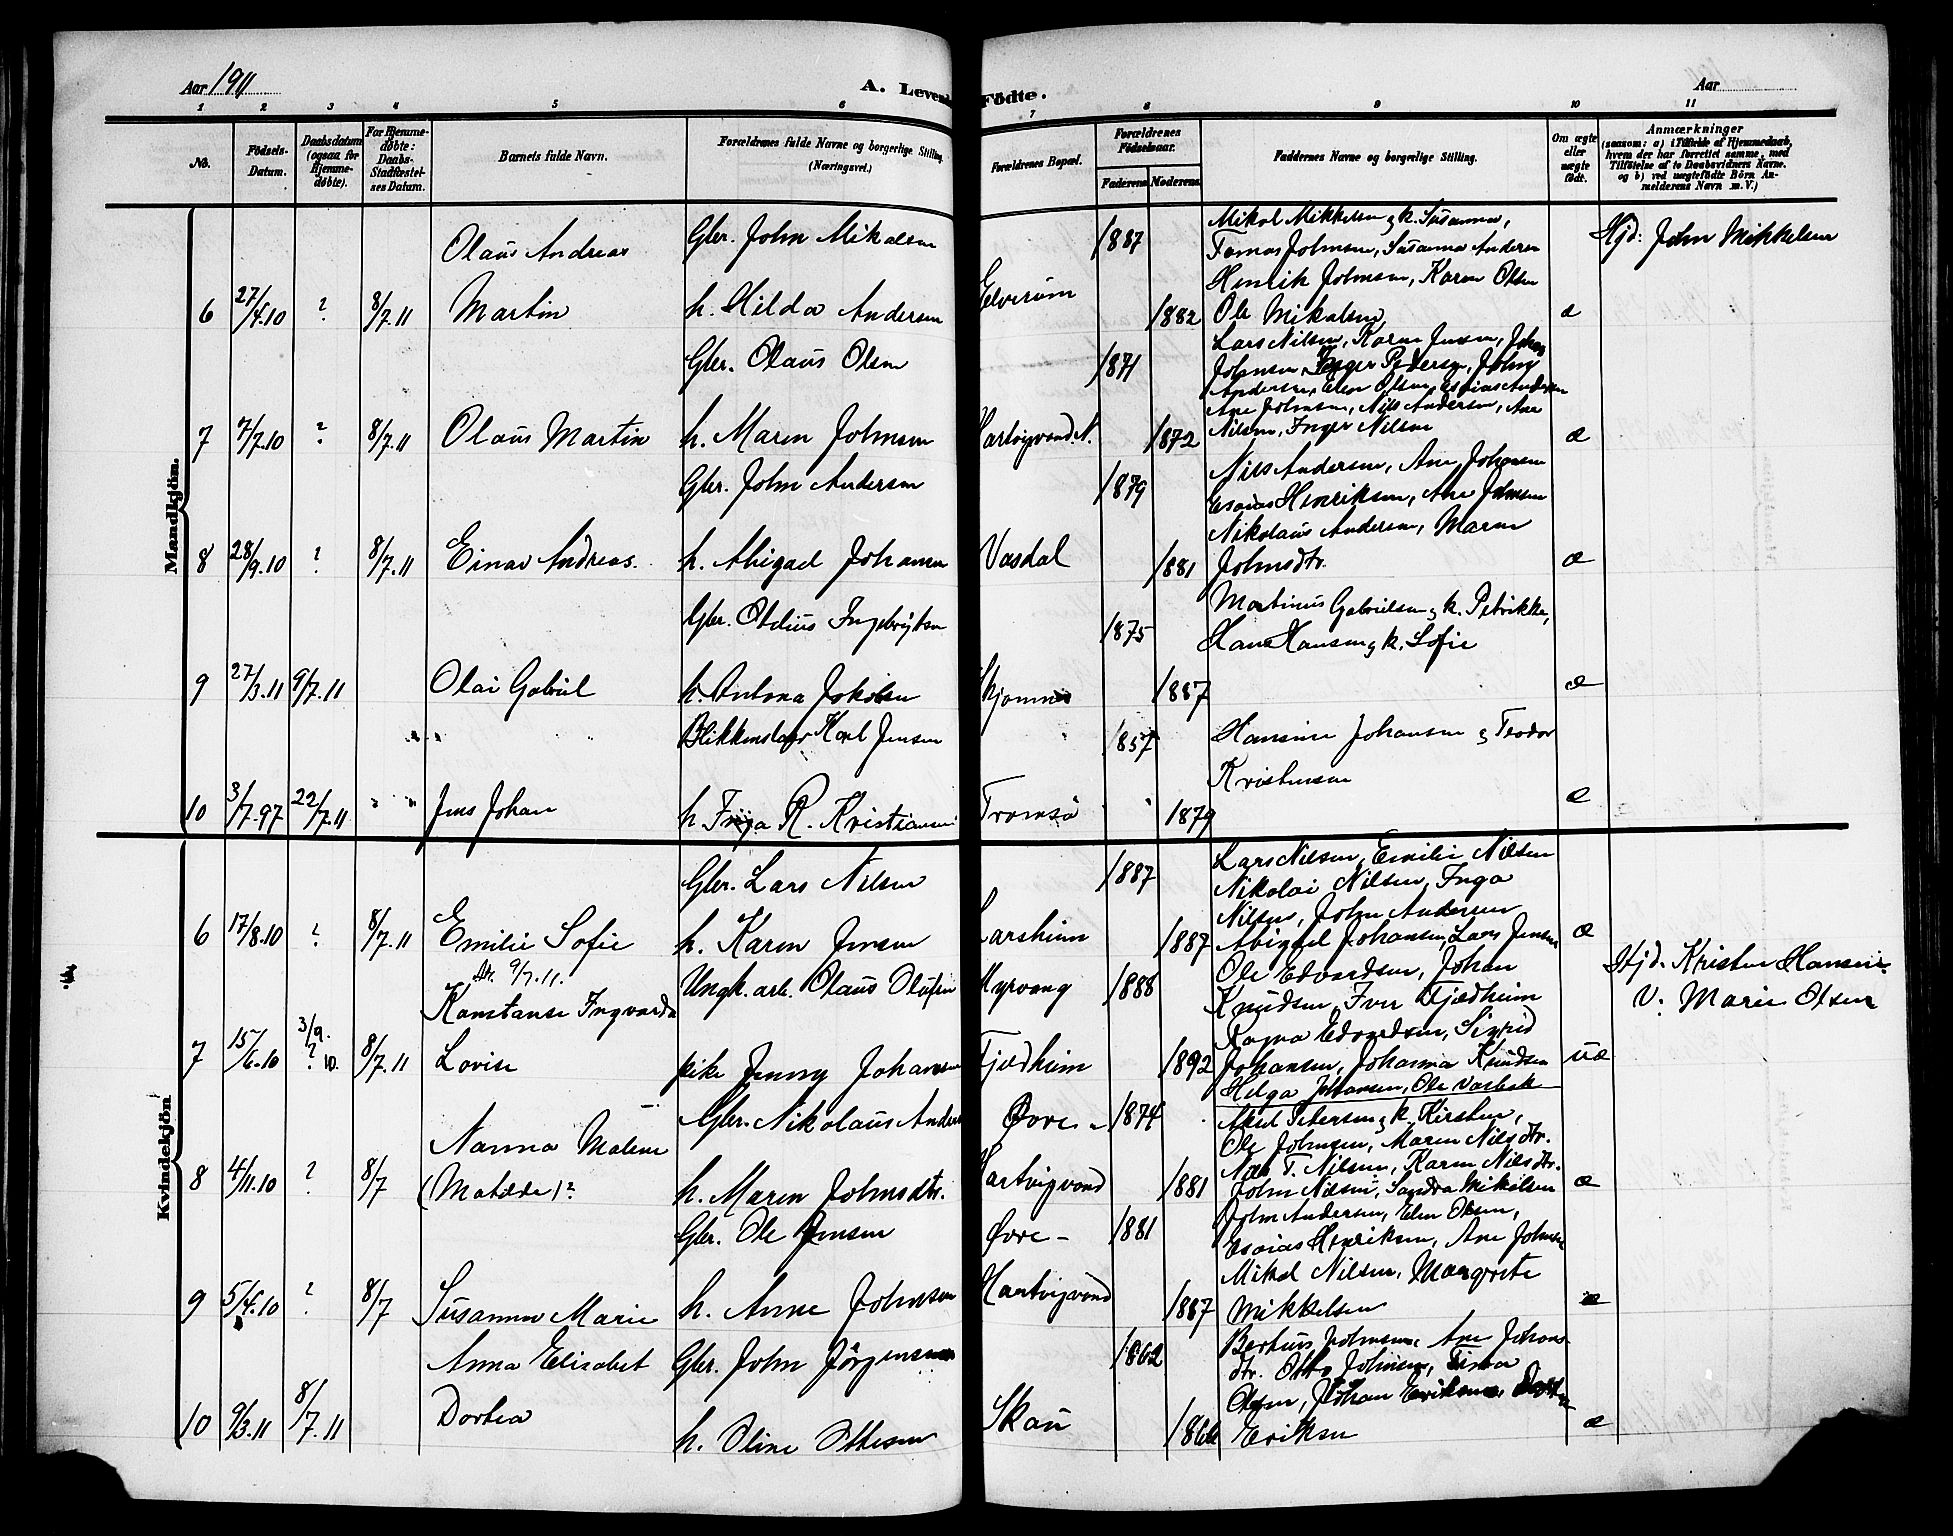 Aar 1911
A. Levende Födte.
Aar
1 2 3 4 5 6 7 8 9 10 11
No.
Födsels-Datum.
Daabsdatum (ogsaa for Hjemmedöbte).
For Hjemmedöbte: Daabs-Stadfæstelses Datum.
Barnets fulde Navn.
Forældrenes fulde Navne og borgerlige Stilling. (Næringsvei.)
Forældrenes Bopæl.
Forældrenes Födselsaar.
Faderens Moderens
Faddernes Navne og borgerlige Stilling.
Om ægte eller uægte födt.
Anmærkninger
(saasom: a) i Tilfælde af Hjemmedaab,
hvem der har forrettet samme, med
Tilföielse af to Daabsvidners Navne.
og b) ved uægtefödte Börn An-
melderens Navn m. V.)
Mandkjön.
Gbr. John Mikalsen 1887 Mikal Mikkelsen & k. Susanna, Hjd: John Mikkelsen
Olaus Andreas Tomas Johnsen, Susanna Andersen
Henrik Johnsen, Karen Olsen
6 27/4.10 ? 8/7.11 Martin h. Hilda Andersen Elverum 1882 Ole Mikalsen æ
Gbr. Olaus Olsen 1871 Lars Nilsen, Karen Jensen, Johan
Johnsen, Inger Pedersen, John
Andersen, Elen Olsen, Esaias Andersen
Ane Johnsen, Nils Andersen, Ane
7 7/7.10 ? 8/7.11 Olaus Martin h. Maren Johnsen Hartvigvand N. 1872 Nilsen, Inger Nilsen æ
Gbr. John Andersen 1879 Nils Andersen, Ane Johansen
Esaias Henriksen, Ane Johnsen
Nikolaus Andersen, Maren
8 28/9.10 ? 8/7.11 Einar Andreas. h. Abigael Johansen Vasdal 1881 Johnsdtr. æ
Gbr. Otelius Ingebrigtsen 1875 Martinus Gabrielsen & k. Petrikke,
Hans Hansen & k. Sofie
9 27/3.11 9/7.11 Olai Gabriel h. Antona Jakobsen Skjomnes 1887 æ
Blikkenslager Karl Jensen 1857 Hansine Johansen & Teodor
Kristensen
10 3/7.97 22/7.11 " " Jens Johan h. Inga R. Kristiansen Tromsö 1879 æ
Kvindekjön
Gbr. Lars Nilsen 1887 Lars Nilsen, Emilie Nilsen
Nikolai Nilsen, Inga
Nilsen, John Andersen
6 17/8.10 ? 8/7.11 Emilie Sofie h. Karen Jensen Larsheim 1887 Abigael Johansen, Lars Jensen æ
9/7.11. Ungk. arb. Olaus Olufsen Myrvang 1888 Ole Edvardsen, Johan Hjd. Kristen Hansen
Konstanse Ingvarda Knudsen, Iver Fjædheim V. Marie Olsen
3/9. Ragna Edvardsen, Sigrid
7 15/6.10 ? 10. 8/7.11 Lovise pike Jenny Johansen Fjædheim 1892 Johansen, Johanna Knudsen uæ
Helga Johansen, Ole Vasbak
Gbr. Nikolaus Andersen Øvre - 1874 Aksel Petersen & k. Kirsten,
Nanna Malene Ole Johnsen, Maren Nilsdtr.
Nils T. Nilsen, Karen Nilsdtr.
8 4/11.10 ? 8/7 (Matilde)? h. Maren Johnsdtr. Hartvigvand 1881 John Nilsen, Sandra Mikalsen æ
Gbr. Ole Jensen Øvre - 1881 John Andersen, Elen Olsen,
Esaias Henriksen, Ane Johnsen
Mikal Nilsen, Margrete
9 5/4.10 ? 8/7 Susanna Marie h. Anne Johnsen Hartvigvand 1887 Mikkelsen æ
Anna Elisabet Gbr. John Jörgensen 1862 Bertius Johnsen, Ane Johans-
dtr. Otto Johnsen, Tina
Olsen, Johan Eriksen,
10 9/3.11 8/7.11 Dortea h. Oline Ottesen Skau 1866 Eriksen æ